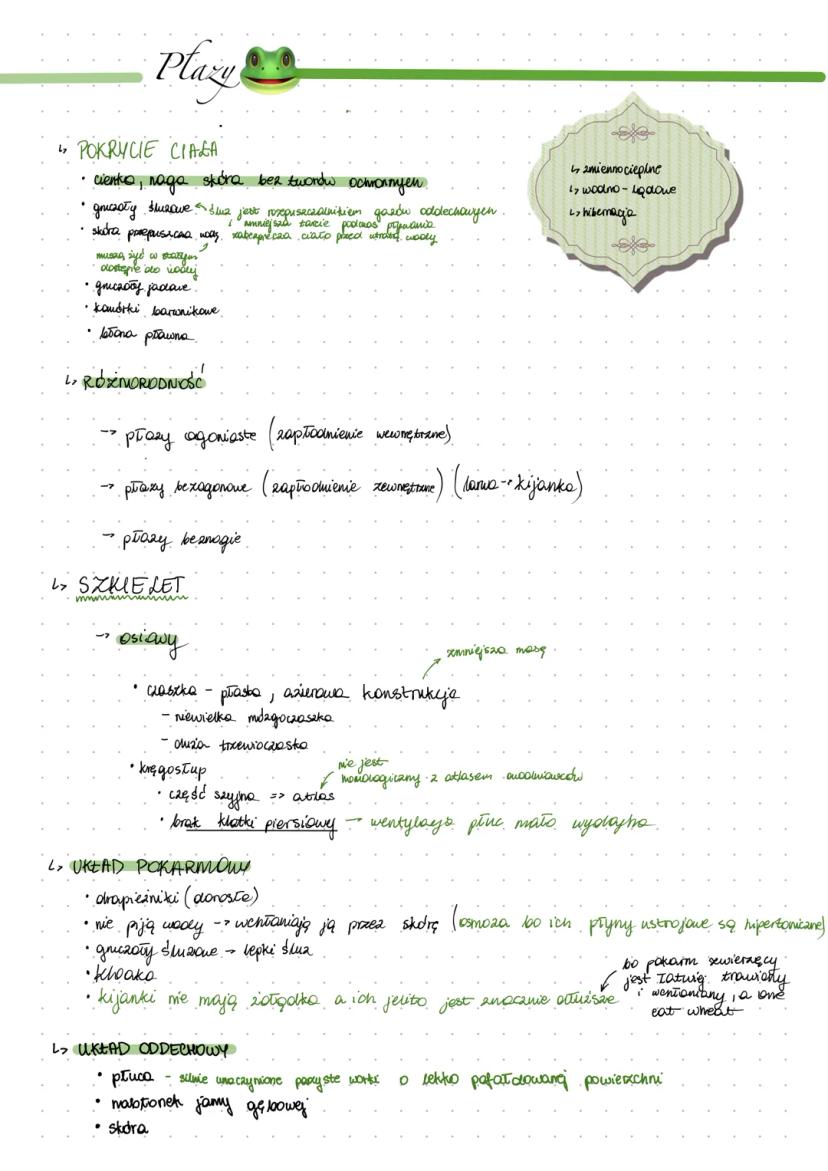 Płazy
↳ POKRYCIE CIAŁA
• cienka, naga skóra bez tworów ochronnych
• gruczoły śluzowe ← śluz jest rozpuszczalnikiem gazów oddechowych
i zmniejsza tarcie podczas pływania
• skóra przepuszcza wodę zabezpiecza ciało przed utratą wody
muszą żyć w stałym
dostępie do wody
• gruczoły jadowe
• komórki barwnikowe
• błona pławna
↳ zmiennocieplne
↳ wodno-lądowe
↳ hibernacja
↳ RÓŻNORODNOŚĆ
→ płazy ogoniaste (zapłodnienie wewnętrzne)
→ płazy bezogonowe (zapłodnienie zewnętrzne) (larwa → kijanka)
→ płazy beznogie
↳ SZKIELET
→ osiowy
zmniejsza masę
• czaszka - płaska, ażurowa konstrukcja
- niewielka mózgoczaszka
- duża trzewioczaszka
• kręgosłup
nie jest
homologiczny z atlasem owodniowców
• część szyjna => atlas
• brak klatki piersiowej → wentylacja płuc mało wydajna
↳ UKŁAD POKARMOWY
• drapieżniki (dorosłe)
• nie piją wody → wchłaniają ją przez skórę (osmoza bo ich płyny ustrojowe są hipertoniczne)
• gruczoły śluzowe → lepki śluz
• kloaka
• kijanki nie mają żołądka a ich jelito jest znacznie dłuższe
bo pokarm zwierzęcy
jest łatwiej trawiony
i wchłaniany, a one
eat wheat
↳ UKŁAD ODDECHOWY
• płuca - silnie unaczynione parzyste worki o lekko pofałdowanej powierzchni
• nabłonek jamy gębowej
• skóra